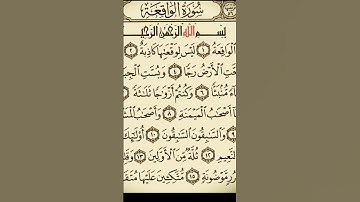 سُورَةُ الْوَاقِعَةِ
بِسْمِ اللَّهِ الرَّحْمَٰنِ الرَّحِيمِ
الْوَاقِعَةُ ١ لَيْسَ لِوَقْعَتِهَا كَاذِبَةٌ ٢
الْأَرْضُ رَجًّا ٤ وَبُسَّتِ
مُّنْبَثًّا ٦ وَكُنْتُمْ أَزْوَاجًا ثَلَاثَةً
أَصْحَابُ الْمَيْمَنَةِ ٨ وَأَصْحَابُ
وَالسَّابِقُونَ السَّابِقُونَ ١٠ أُولَٰئِكَ
١٢ ثُلَّةٌ مِّنَ الْأَوَّلِينَ ١٣
مَّوْضُونَةٍ ١٥ مُّتَّكِئِينَ عَلَيْهَا